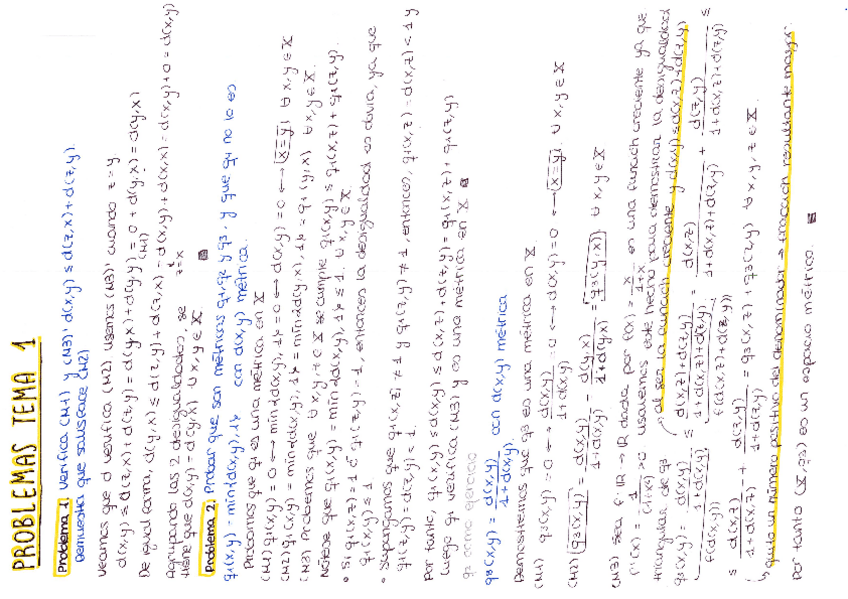 PROBLEMAS TEMA 1
Problema 1. Verifica (M1) y (M3)' d(x,y) ≤ d(z,x) + d(z,y).
Demuestra que satisface (M2)
Veamos que d verifica (M2). Usemos (M3)' cuando z = y
d(x,y) ≤ d(z,x) + d(z,y) = d(y,x) + d(y,y) = 0 + d(y,x) = d(y,x)
(M1)
De igual forma, d(y,x) ≤ d(z,y) + d(z,x) = d(x,y) + d(x,x) = d(x,y) + 0 = d(x,y)
z=x
Agrupando las 2 desigualdades, se
tiene que d(x,y) = d(y,x) ∀ x,y ∈ X.
Problema 2. Probar que son métricas q1, q2 y q3, y que q4 no lo es
q1(x,y) = min{d(x,y), 1} con d(x,y) métrica.
Probemos que q1 es una métrica en X
(M1) q1(x,y) = 0 ↔ min{d(x,y), 1} = 0 ↔ d(x,y) = 0 ↔ x=y ∀ x,y ∈ X
(M2) q1(x,y) = min{d(x,y), 1} = min{d(y,x), 1} = q1(y,x) ∀ x,y ∈ X.
(M3) Probemos que ∀ x,y,z ∈ X se cumple q1(x,y) ≤ q1(x,z) + q1(z,y).
Nótese que q1(x,y) = min{d(x,y), 1} ≤ 1. ∀ x,y ∈ X.
• Si q1(x,z) = 1 ó q1(z,y) = 1, entonces la desigualdad es obvia, ya que
q1(x,y) ≤ 1
• Supongamos que q1(x,z) ≠ 1 y q1(z,y) ≠ 1, entonces, q1(x,z) = d(x,z) < 1 y
q1(z,y) = d(z,y) < 1.
Por tanto, q1(x,y) ≤ d(x,y) ≤ d(x,z) + d(z,y) = q1(x,z) + q1(z,y)
Luego q1 verifica (M3) y es una métrica en X
q2 como ejercicio
q3(x,y) = d(x,y) / 1+d(x,y) con d(x,y) métrica
Demostremos que q3 es una métrica en X.
(M1) q3(x,y) = 0 ↔ d(x,y) / 1+d(x,y) = 0 ↔ d(x,y) = 0 ↔ x=y. ∀ x,y ∈ X
(M2) q3(x,y) = d(x,y) / 1+d(x,y) = d(y,x) / 1+d(y,x) = q3(y,x) ∀ x,y ∈ X
(M3) Sea f: R → R dada por f(x) = x / 1+x es una función creciente ya que
f'(x) = 1 / (1+x)² > 0 Usaremos este hecho para demostrar la desigualdad
triangular de q3 al ser la función creciente y d(x,y) ≤ d(x,z) + d(z,y)
q3(x,y) = d(x,y) / 1+d(x,y) ≤ d(x,z)+d(z,y) / 1+d(x,z)+d(z,y) = d(x,z) / 1+d(x,z)+d(z,y) + d(z,y) / 1+d(x,z)+d(z,y) ≤
f(d(x,y)) f(d(x,z)+d(z,y))
≤ d(x,z) / 1+d(x,z) + d(z,y) / 1+d(z,y) = q3(x,z) + q3(z,y) ∀ x,y,z ∈ X.
quito un número positivo del denominador → fracción resultante mayor.
Por tanto (X, q3) es un espacio métrico.